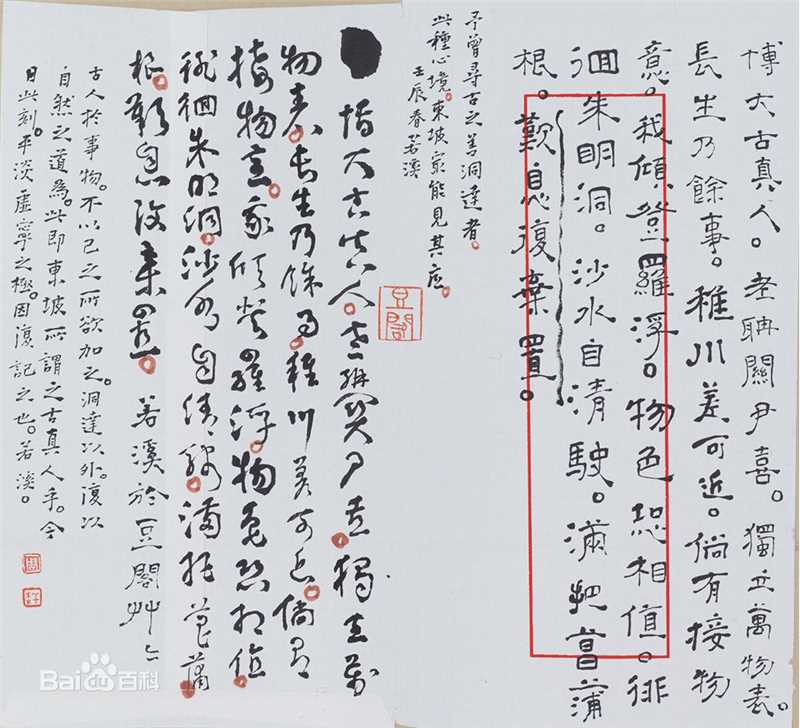 博大古真人。老聃關尹喜。獨立萬物表。
長生乃餘事。稚川差可近。倘有接物
意。我傾登羅浮。物色恐相值。徘
徊朱明洞。沙水自清駛。滿把菖蒲
根。歎息復棄置。
予曾尋古之善洞達者。
此種心境。東坡㝡能見其底。
壬辰春若溪
豆閣
博大古真人。老聃關尹喜。獨立萬
物表。長生乃餘事。稚川差可近。倘有
接物意。我傾登羅浮。物色恐相值。
徘徊朱明洞。沙水自清駛。滿把菖蒲
根。歎息復棄置。若溪於豆閣艸艸
古人於事物。不以己之所欲加之。洞達以外。復以
自然之道為。此即東坡所謂之古真人乎。今
日此刻。平淡虛寧之極。因復記之也。若溪。
Bai百科